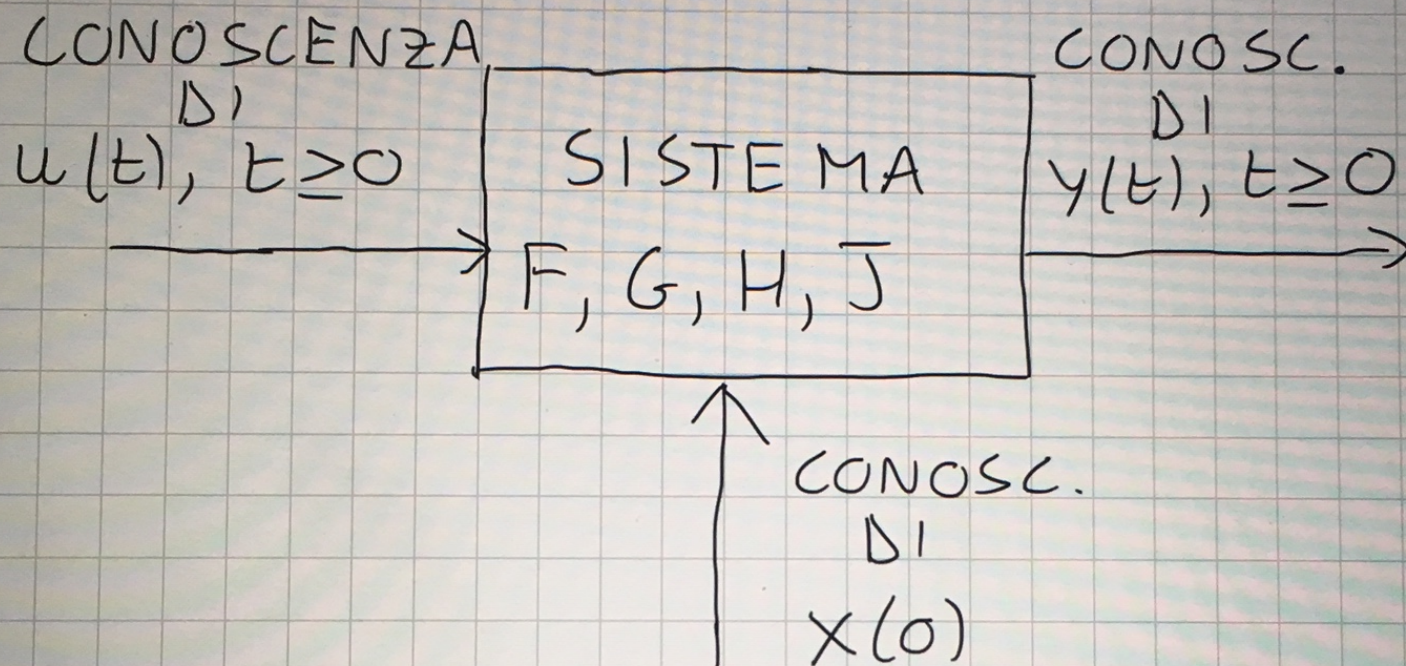 CONOSCENZA
DI
u(t), t≥0
SISTEMA
F, G, H, J
CONOSC.
DI
y(t), t≥0
CONOSC.
DI
X(0)